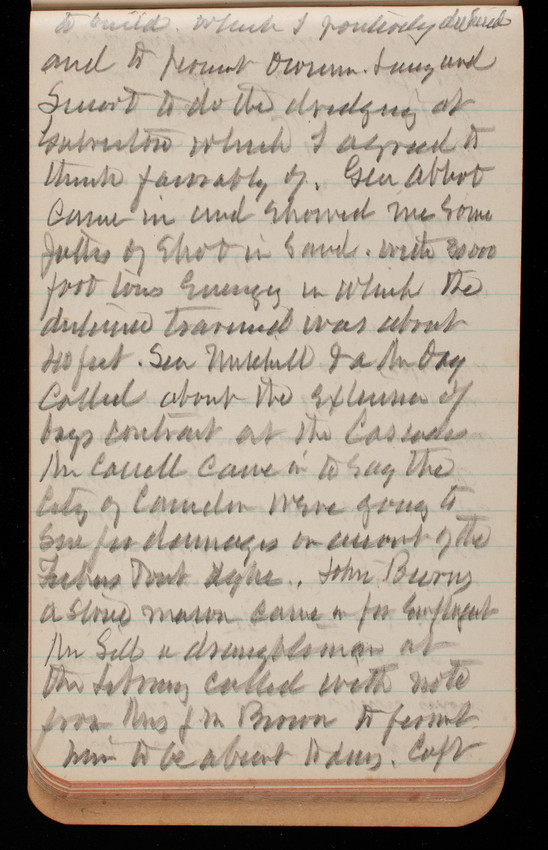 to build. which I positively declined
and to permit
Smoot to do the dredging at
which I agreed to
think favorably of. Gen Abbot
came in and showed me some
of shot in sand. with 30000
foot tons Energy in which the
distance traversed was about
40 feet. Sen Mitchell & a Mr Day
called about the extension of
Days contract at the Cascades
Mr Carroll came in to say the
City of Camden were going to
sue for damages on account of the
Fishers Point Dyke. John Burns
a stone mason came in for Employment
Mr Sill a draughtsman at
the Library called with note
from Mrs J M Brown to permit
him to be absent today. Capt